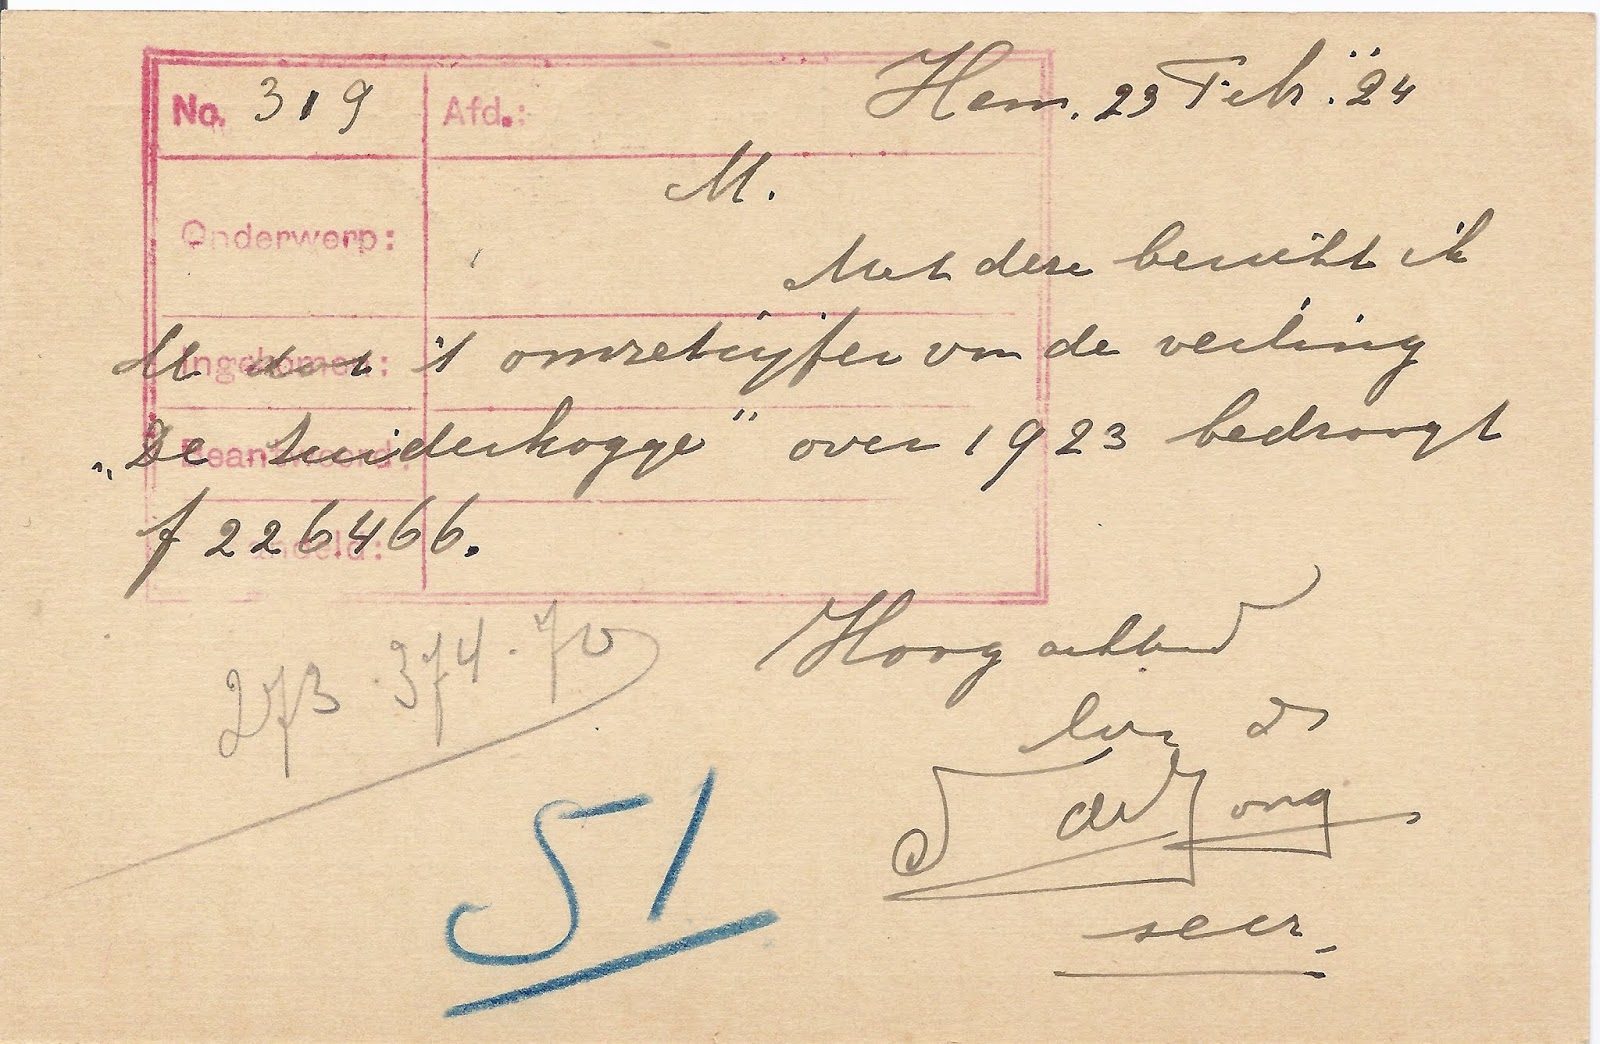 No. 319 Afd.:
Hem. 23 Feb. "24
M.
Onderwerp:
Met deze bericht ik
Ingekomen:
U dat 't omzetcijfer van de veiling
Beantwoord:
"De Zuiderkogge" over 1923 bedraagt
f 226466.
andeld:
Hoogachtend
273.374.70
de Jong
secr.
51